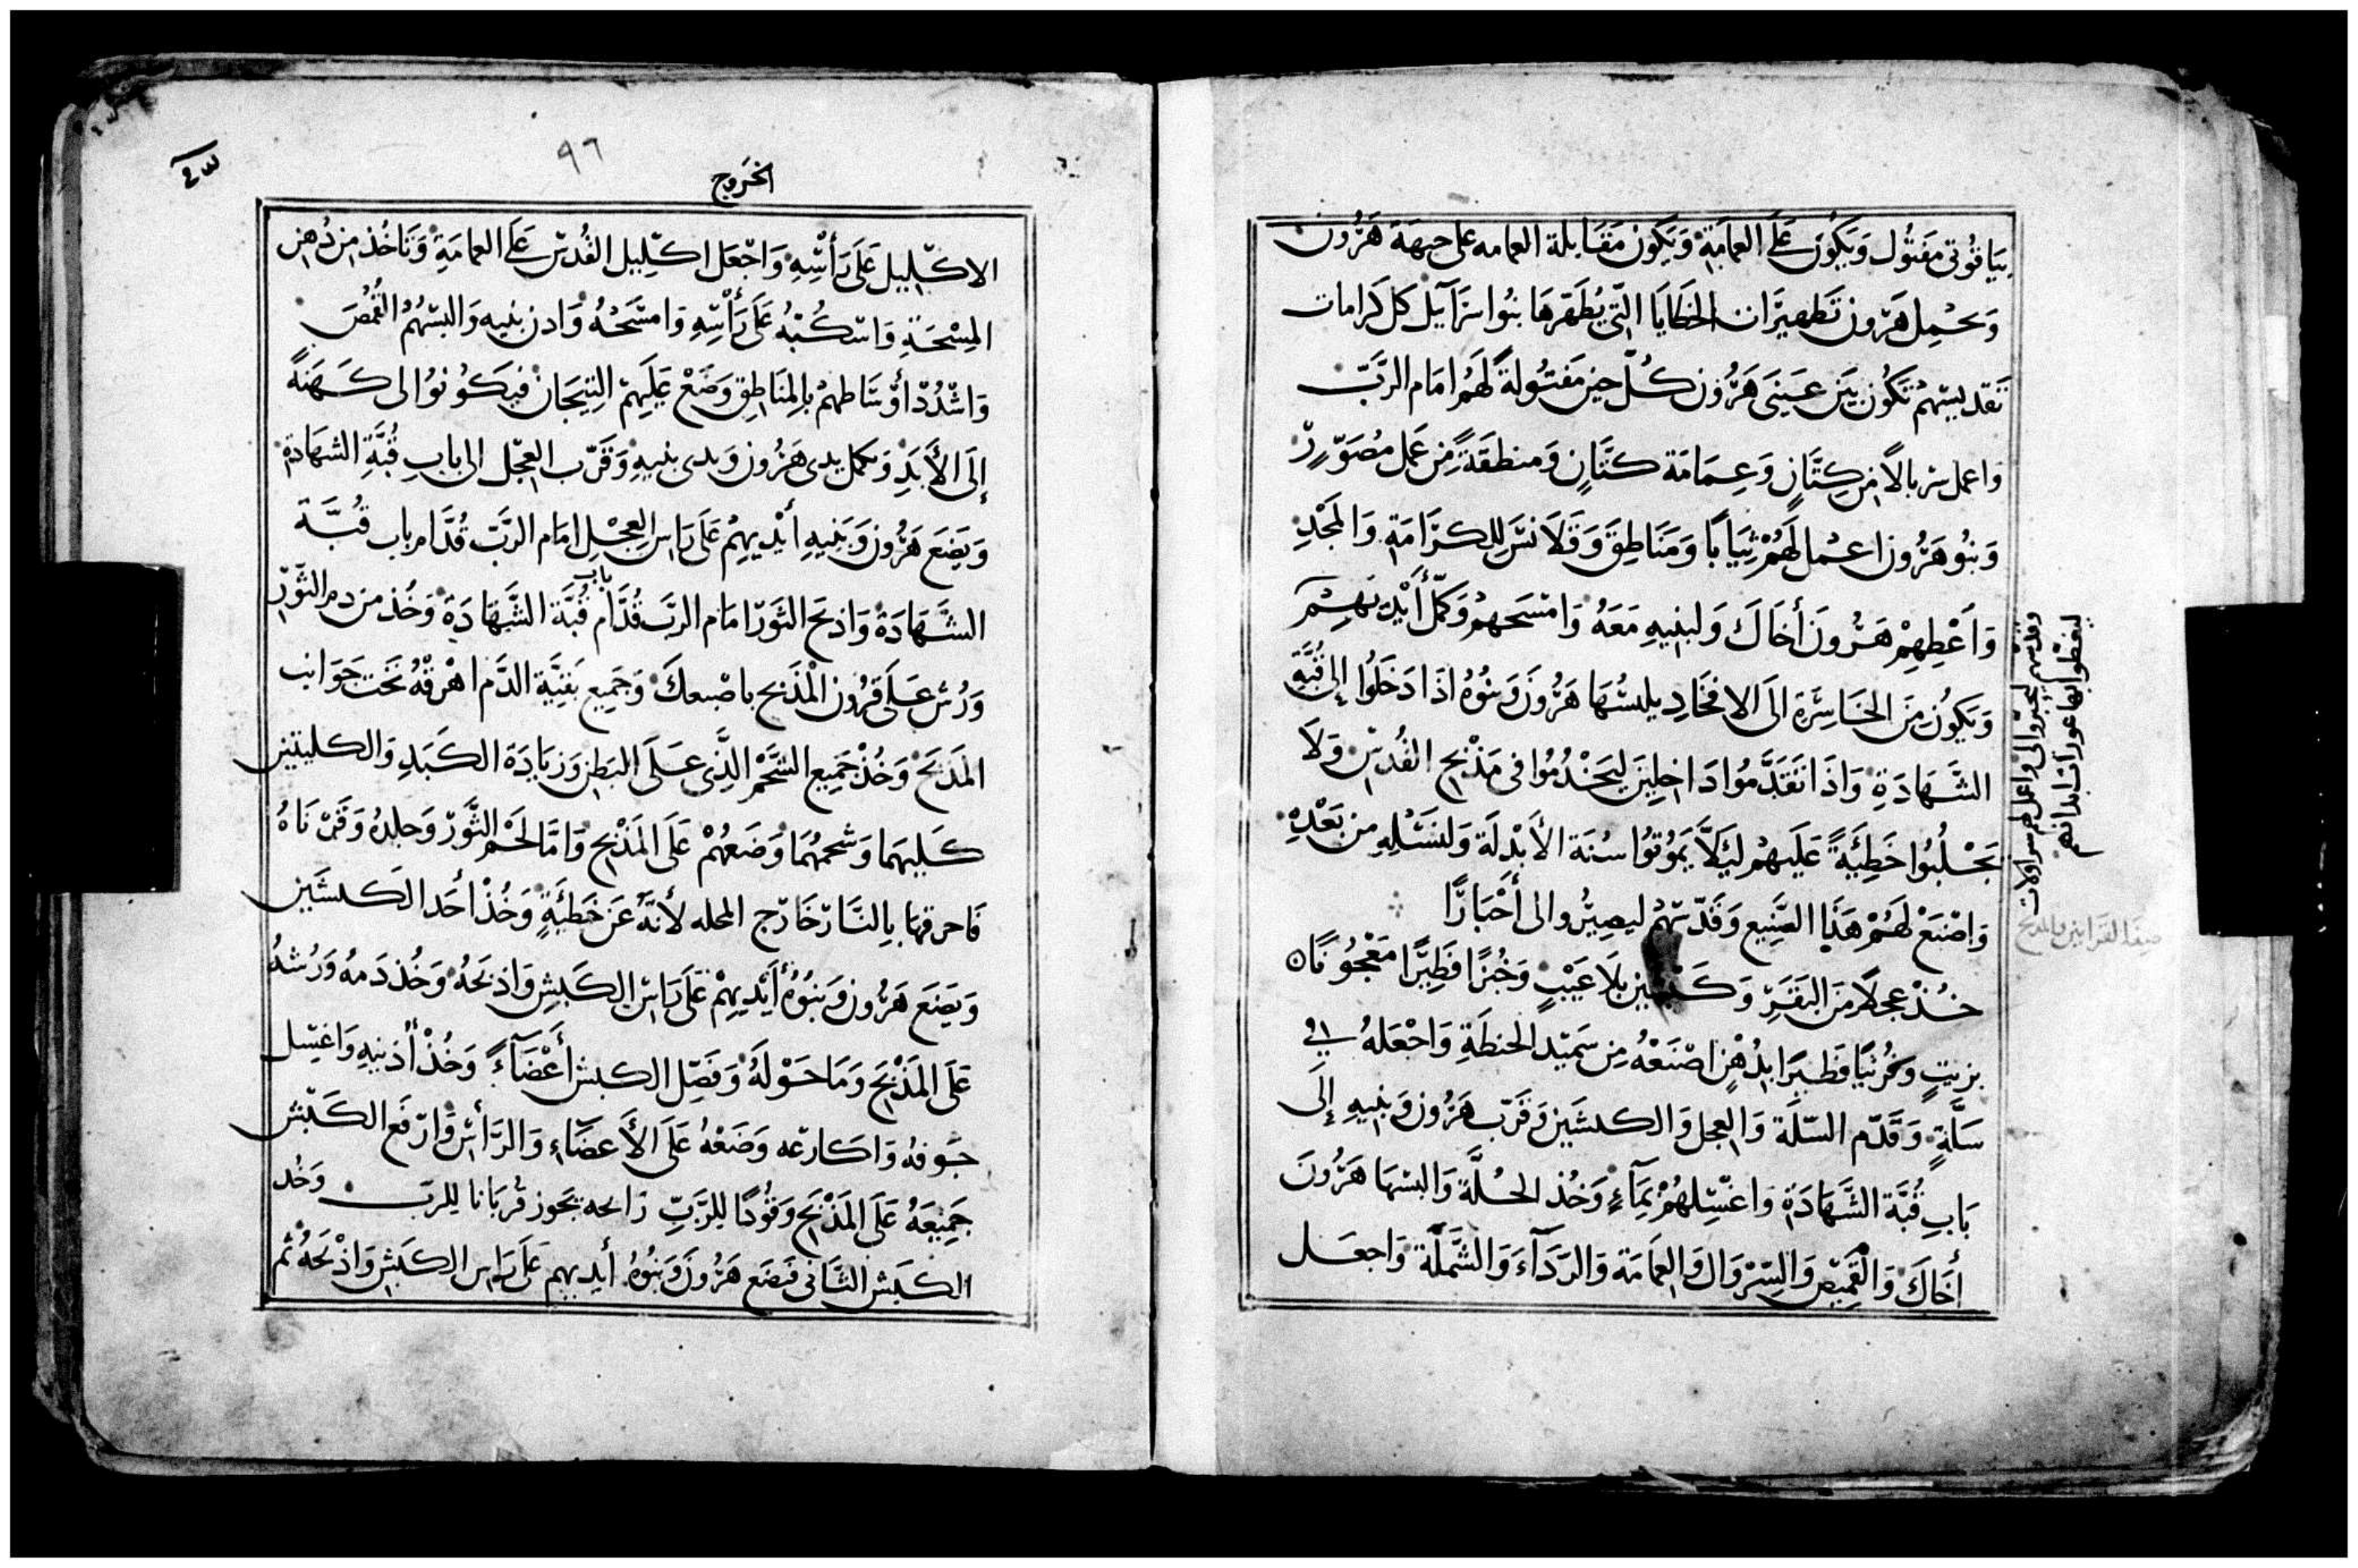 بياقوتى مفتول وَيَكُون عَلَى العمامَةِ وَيَكون مقَابلة العمامه على جبهة هَرُون
وَيحْمِل هَرُون تَطهيرَات الخَطَايَا التّي يُطَهّرهَا بنُوا سرَآيل كل كَرامات
تَقديسِهمْ تَكُون بَيَن عَينَى هَرُون كُلّ حين مَقبُولةً لَهُم امَام الرَّبّ
وَاعمل سربالاً من كِتَّانٍ وَعِمَامَة كتَّانٍ وَمنطقَةً مِن عَمل مُصَوّرٍ
وَبنُو هَرُون اعمل لَهُمْ ثِيَابًا وَمَنَاطِقَ وَقَلَانسَ لِلكَرَامَةِ وَالمَجْدِ
وَاَعْطِهِمْ هَرُونَ أخَاكَ وَلبنِيهِ مَعَهُ وَامْسَحهمْ وَكَمّل أَيْدِيَهِمْ
وَيَكُونُ مِنَ الخَاسِرَةِ الَى الافخَادِ يلبسُهَا هَرُونَ وَبَنُوهُ اذَا دَخَلُوا إلى قُبَّةِ
الشَّهَادَةِ وَاذَا تَقَدَّمُوا دَاخِلِينَ ليَخْدُمُوا فى مَذْبَحِ القُدسِ وَلَا
يَجْلبُوا خَطِئَةً عَلَيهمْ لِئَلَّا يَمُوتُوا سُنَة الأَبْدلَة وَلنَسْلِهِ من بَعْدِهِ
وَاصْنَعْ لَهُمْ هَذَا الصَّنِيع وَقَدّسْهُمْ ليصِيرُوا لى أَحْبَارًا
خُذْ عجلًا مِنَ البَقَرِ وَكَبْشَين بلَا عَيْبٍ وَخُبزًا فَطِيرًا مَعْجُونًا
بزيتٍ وَخُرنيًا فَطيرًا بدُهْنٍ اصْنَعْهُ مِن سَميْد الحنطَةِ وَاجْعَلهُ فى
سَلَّةٍ وَقَدّم السّلَة وَالعجل وَالكبشَين وَقَرّب هَرُون وَبنيهِ إلَى
بَابِ قُبَّة الشَّهَادَةِ وَاغْسِلهُمْ بمَآءٍ وَخُذ الحُلَّةَ وَالبسهَا هَرُونَ
أخَاكَ وَالقَمِيصَ وَالسِّرْوَالَ وَالعمَامَة وَالرّدَآءَ وَالشَّمْلَةَ وَاجعَل
وقدسهم ليخبروا لى واعمل لهم سراولات
ليغطوا بها عورات ابدانهم
صفة القرابين والمذبح
٩٦
الخَروج
الاكلِيل عَلَى رَأسِهِ وَاجْعَل اكلِيل القُدسِ عَلَى العمامَةِ وَتَاخُذ من دُهن
المِسْحَةِ وَاسكُبْهُ عَلَى رَأسِهِ وَامسَحْهُ وَادن بنيه وَالبسْهُمُ القُمُصَ
وَاشْدُدْ أوْسَاطهمْ بالمِنَاطِق وَضَعْ عَلَيهِمْ التِيجَانَ فيَكُونُوا لى كَهَنَةً
إلَى الأَبَدِ وَتكمل يدى هَرُون وَيدى بنيهِ وَقَرّب العجْل الى بابِ قُبَّةِ الشهَادَةِ
وَيضَع هَرُون وَبَنِيهِ أيْديهِمْ عَلَى رَاس العِجْلِ امَام الرَبّ قُدَّام باب قُبَّة
الشَّهَادَة وَاذبَح الثَوْر امَام الربّ قُدَّام باب قُبَّة الشَّهَادَةِ وَخُذ من دم الثَّوْرِ
وَرُش عَلَى قَرُون المَذْبَح باصْبعكَ وَجَمِيع بَقيَّةِ الدَّم اهْرقهُ تَحت جَوَانب
المَذبَح وَخُذْ جَمِيع الشَّحْم الَّذِى عَلَى البَطن وَزيَادَة الكَبَدِ وَالكليتين
كَليهما وَشَحمهُمَا وَضَعهُمْ عَلَى المَذْبَح وَامَّا لَحْم الثَّوْر وَجلدهُ وَفَرْنَاهُ
فَاحرقهَا بِالنَّار خَارج المحله لأنَّهُ عَن خَطِئَةٍ وَخُذْ أحَد الكبشَين
وَيَضَعَ هَرُون وَبنوُهُ أيْديهِمْ عَلَى رَاس الكَبش وَاذبحَهُ وَخُذ دَمهُ وَرُشهُ
عَلَى المَذْبَح وَمَا حَوْلَهُ وَفَصّل الكبش أعْضَآءً وَخُذْ أذنيهِ وَاغسِل
جَوفهُ وَاكَارعه وَضَعْهُ عَلَى الأَعضَآءِ وَالرَّأس وَارفَع الكَبْش
جَمِيعَهُ عَلَى المَذْبَح وَقُودًا لِلرَّبّ رَائحه بَخور قُربَانا للربّ وَخُذ
الكَبَش الثَّانى فيَضَع هَرُون وَبنُوهُ أيديهم عَلَى رَاس الكَبَش وَاذْبَحَهُ ثم